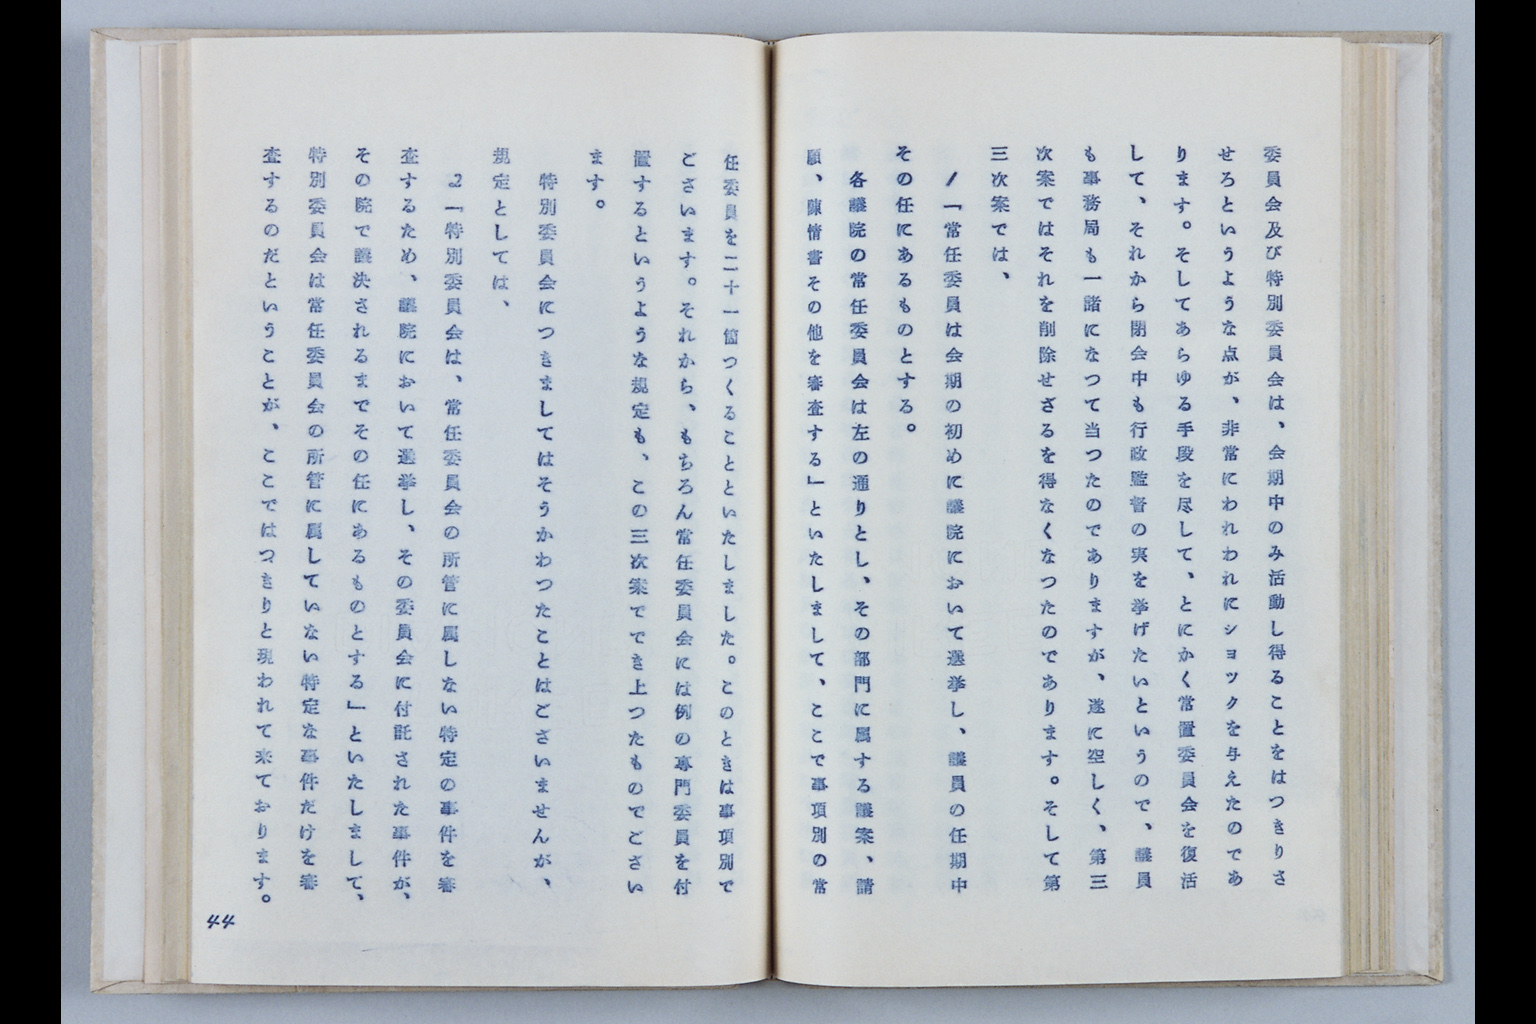 委員会及び特別委員会は、会期中のみ活動し得ることをはつきりさ
せろというような点が、非常にわれわれにショックを与えたのであ
ります。そしてあらゆる手段を尽して、とにかく常置委員会を復活
して、それから閉会中も行政監督の実を挙げたいというので、議員
も事務局も一諸になつて当つたのでありますが、遂に空しく、第三
次案ではそれを削除せざるを得なくなつたのであります。そして第
三次案では、
1「常任委員は会期の初めに議院において選挙し、議員の任期中
その任にあるものとする。
各議院の常任委員会は左の通りとし、その部門に属する議案、請
願、陳情書その他を審査する」といたしまして、ここで事項別の常
任委員を二十一箇つくることといたしました。このときは事項別で
ございます。それから、もちろん常任委員会には例の専門委員を付
置するというような規定も、この三次案ででき上つたものでござい
ます。
特別委員会につきましてはそうかわつたことはございませんが、
規定としては、
2「特別委員会は、常任委員会の所管に属しない特定の事件を審
査するため、議院において選挙し、その委員会に付託された事件が、
その院で議決されるまでその任にあるものとする」といたしまして、
特別委員会は常任委員会の所管に属していない特定な事件だけを審
査するのだということが、ここではつきりと現われて来ております。
44